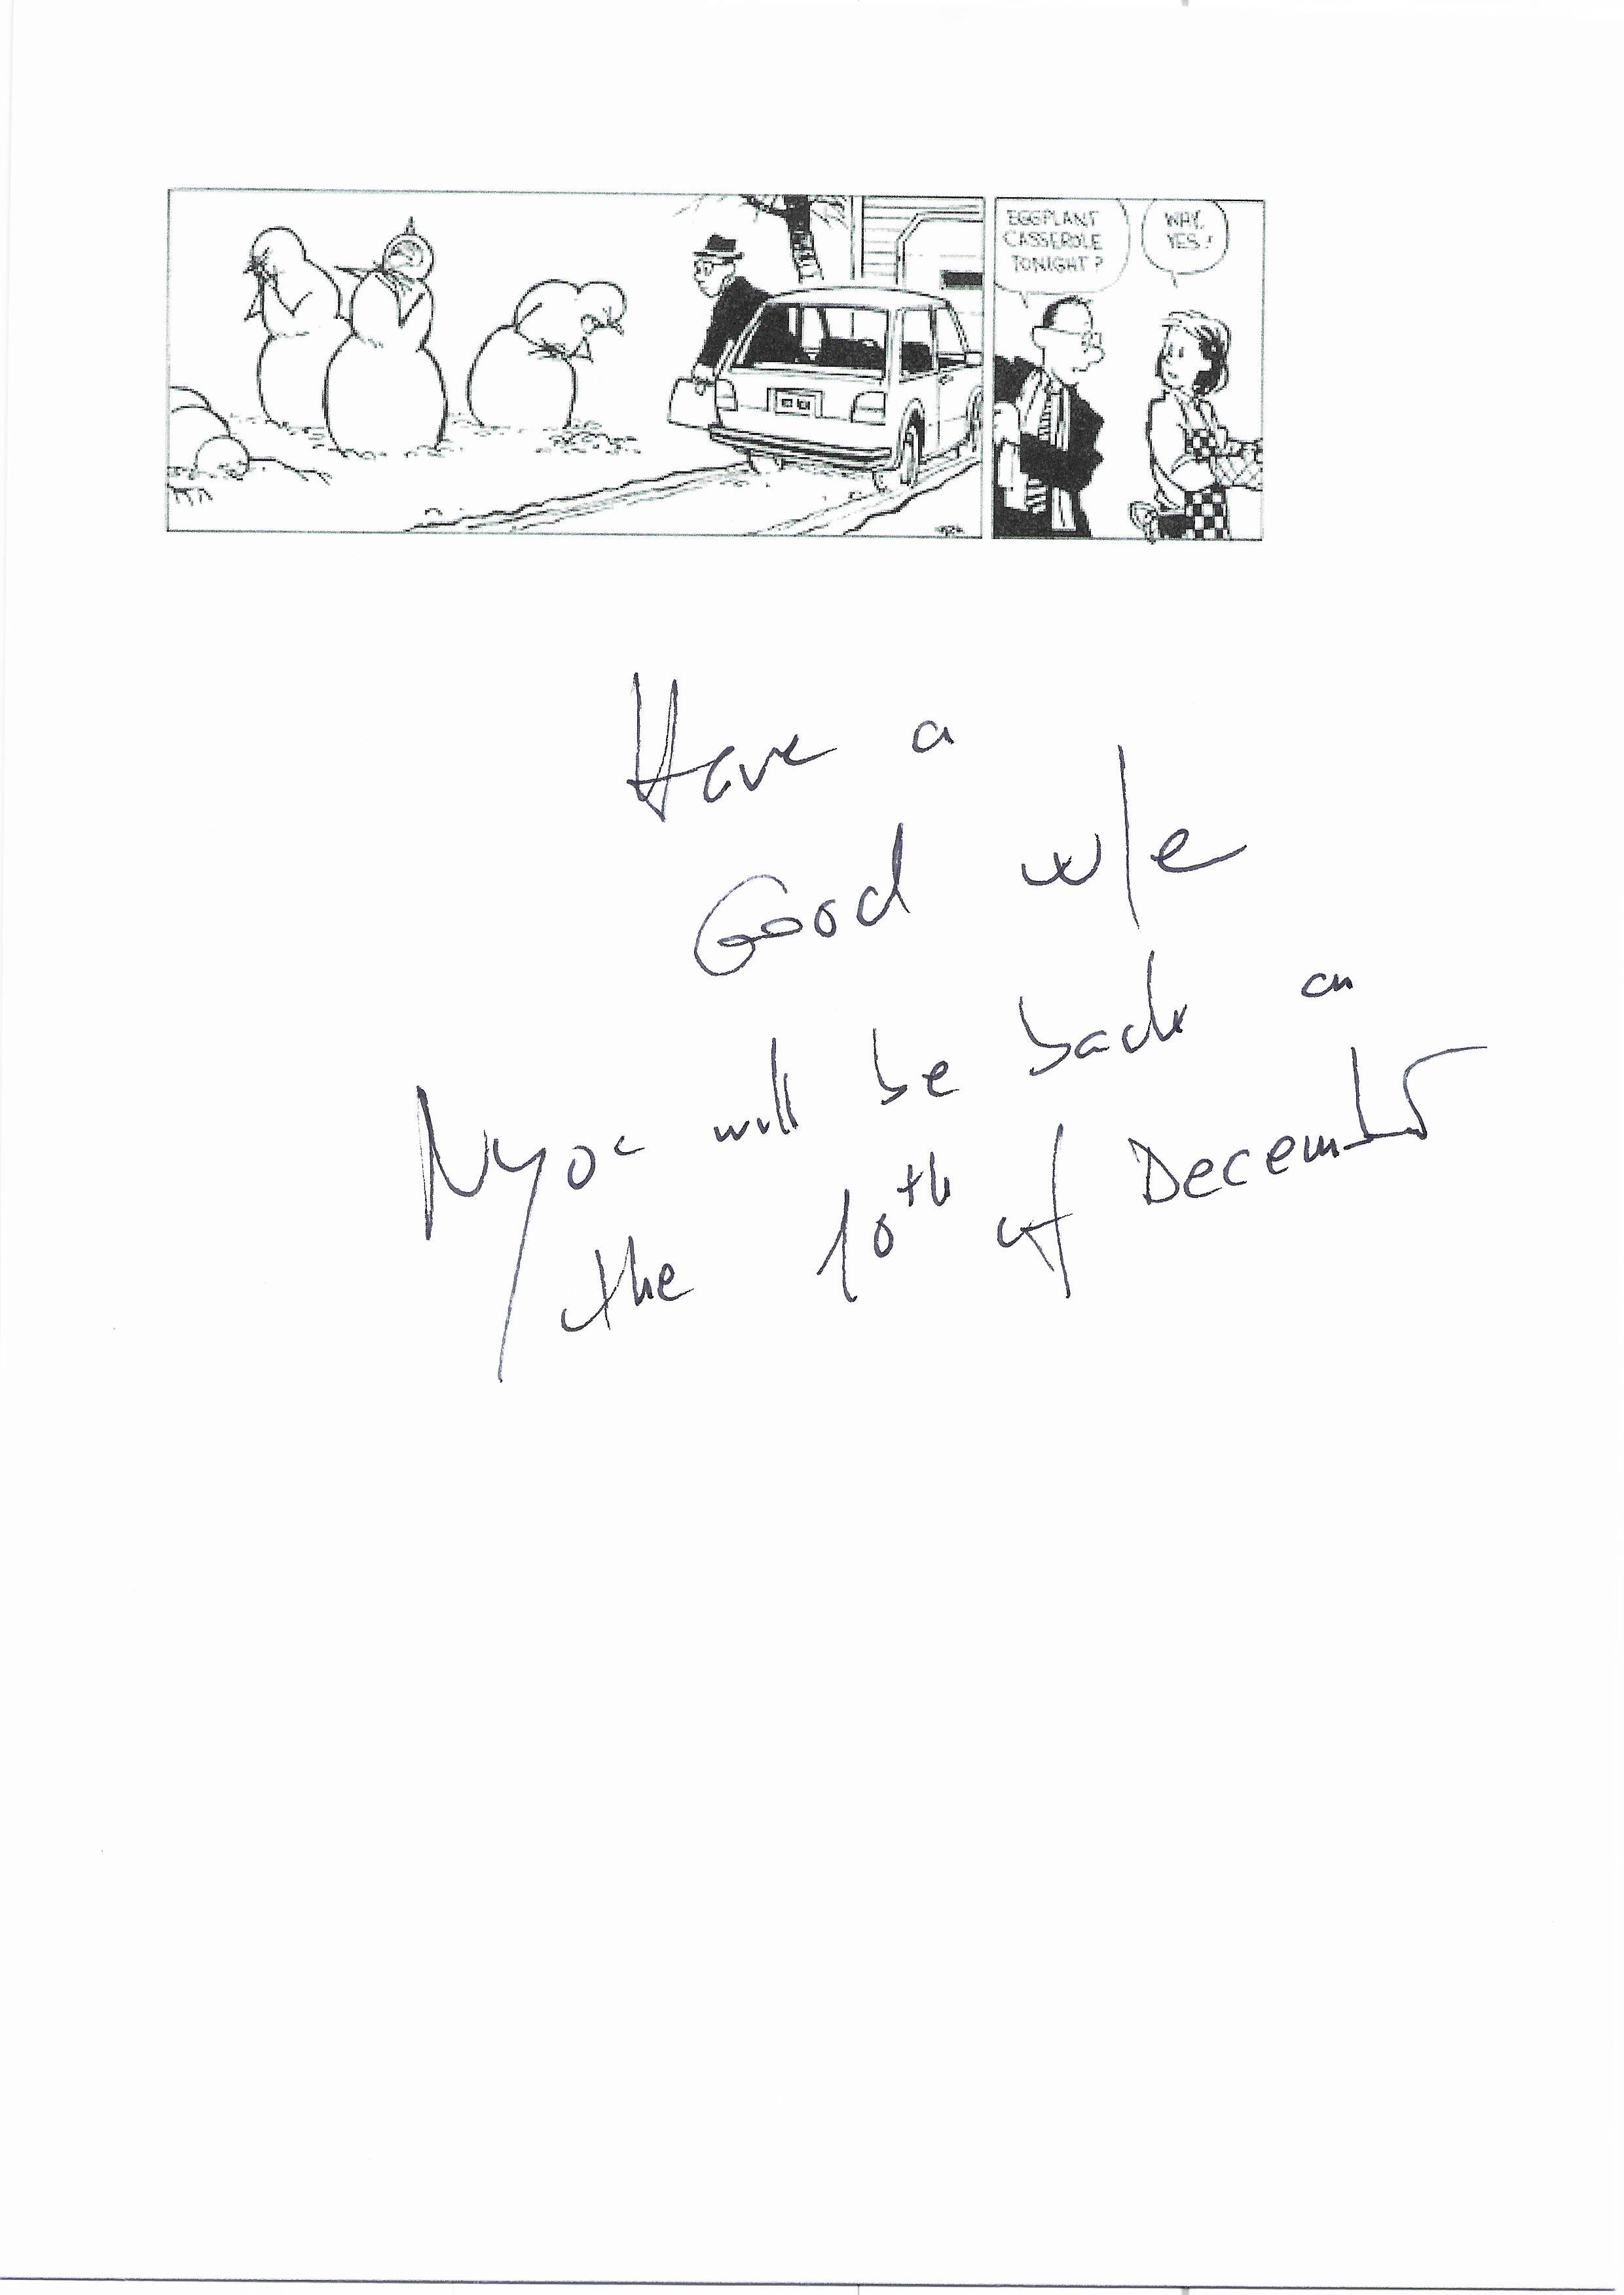 EGGPLANT
CASSEROLE
TONIGHT?
WHY,
YES!
Have a
Good w/e
will be back on
the 10th of December